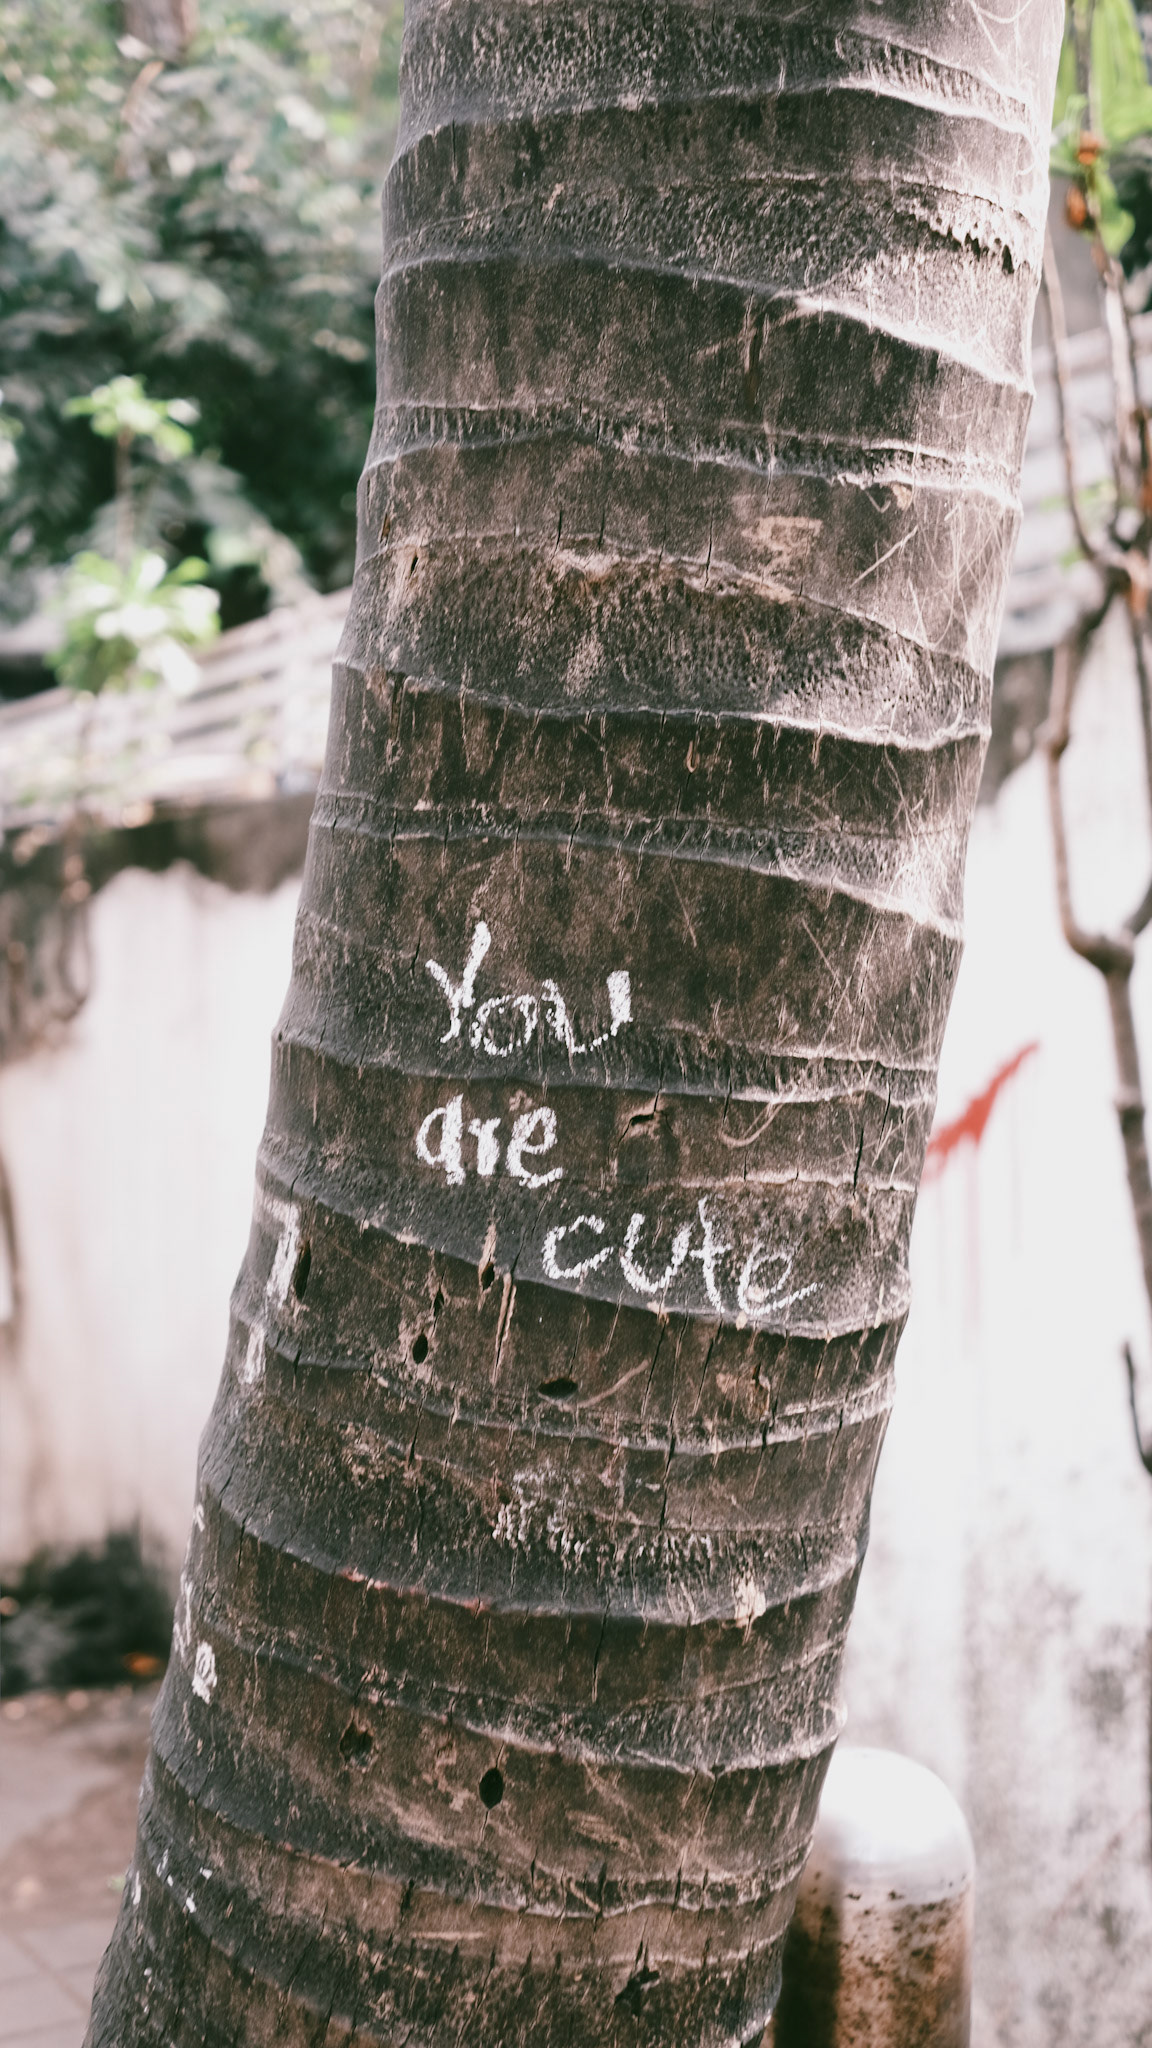 You
are
cute